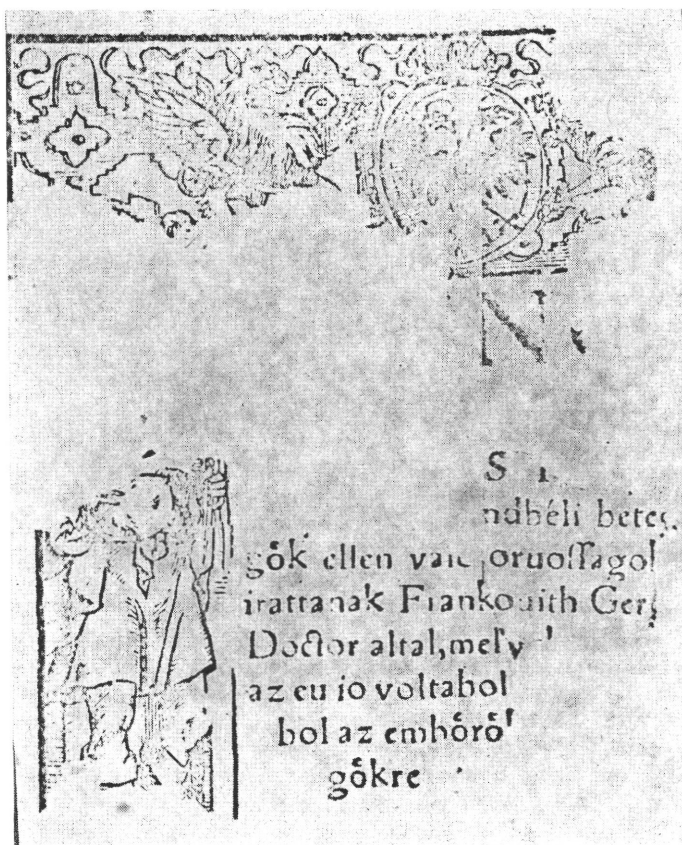 S
ndbéli beteg
gők ellen valc oruoſſagol
irattanak Frankouith Ger
Doctor altal, mely
az eu io voltabol
bol az emhőrő
gőkre